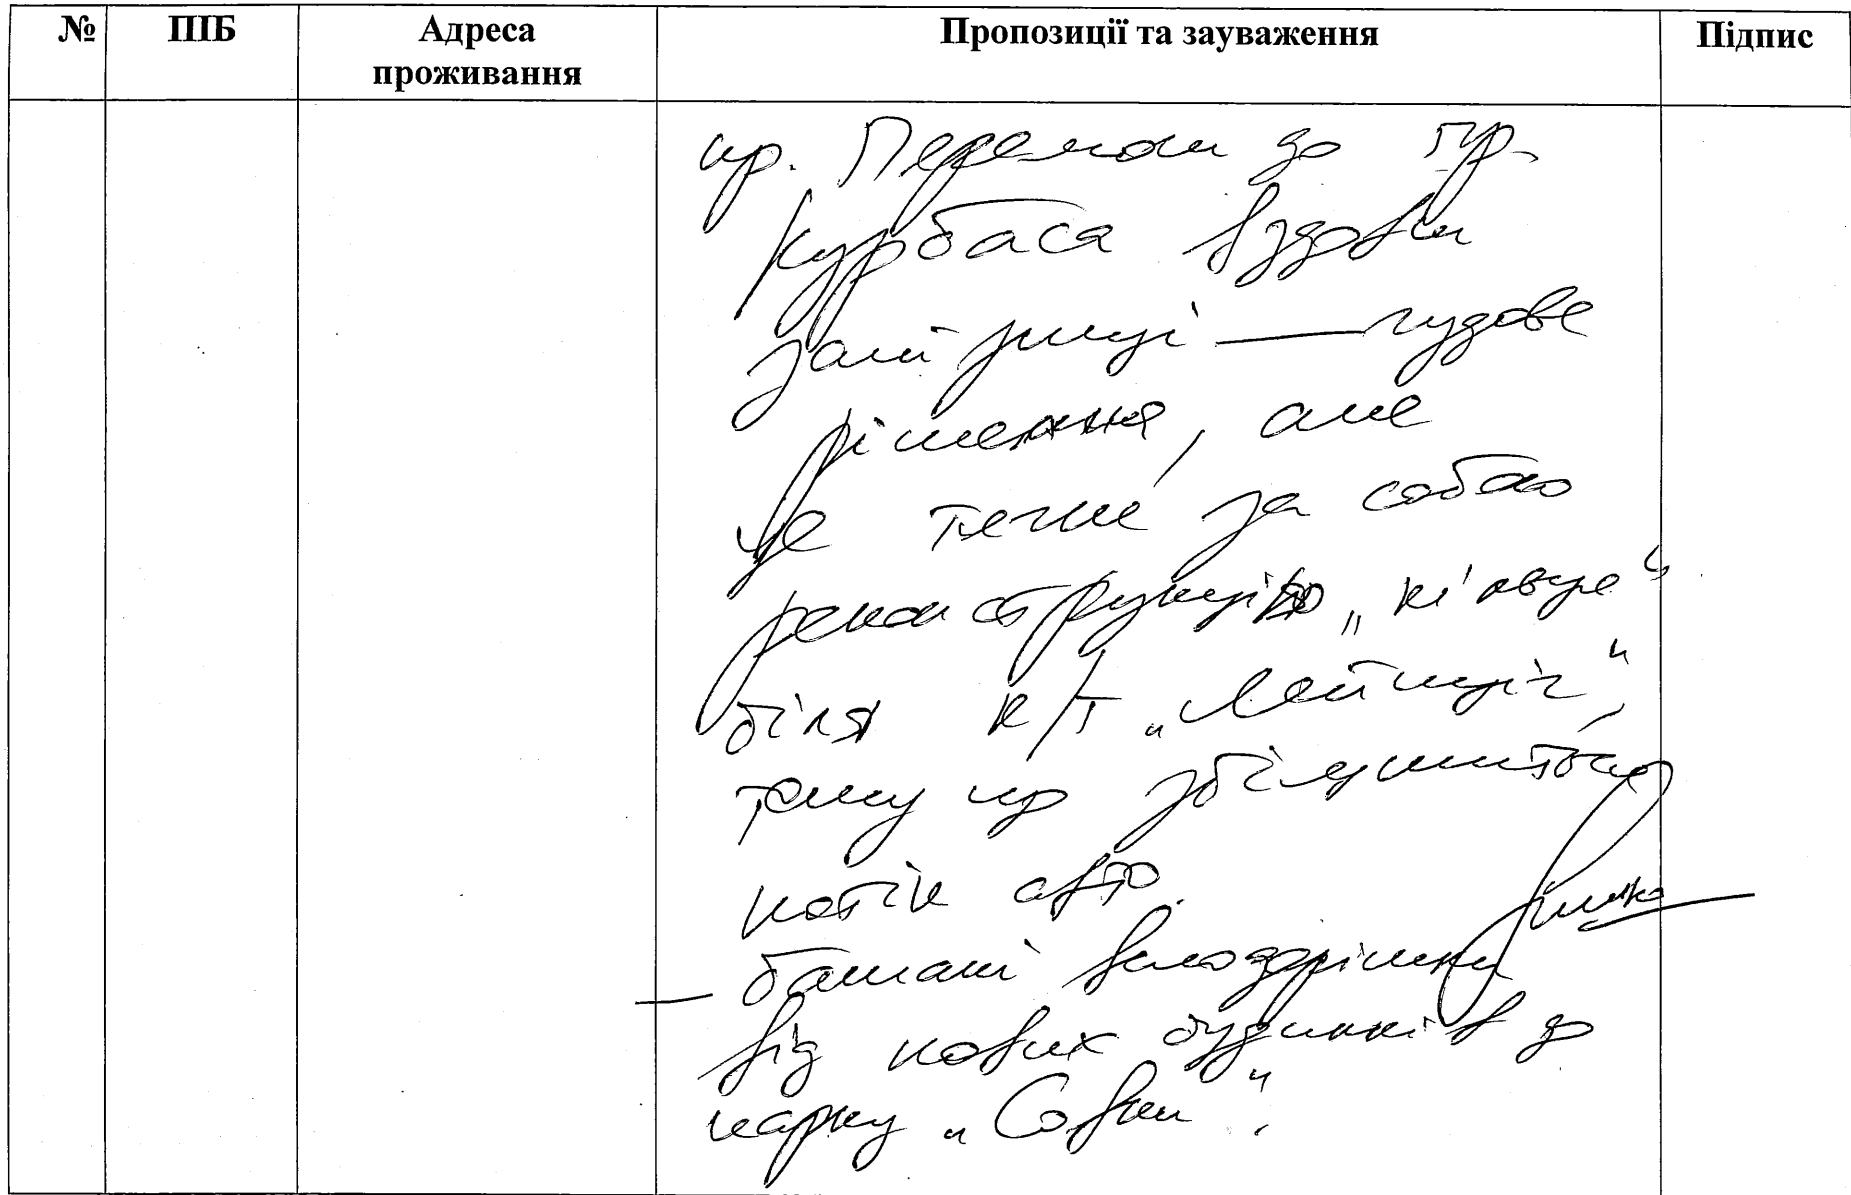 № ПІБ Адреса проживання Пропозиції та зауваження Підпис
пр. Перемоги до пр.
Курбаса вздовж
залізниці — чудове
рішення, але
це тягне за собою
реконструкцію „кільця“
біля к/т „Лейпціг“,
тому що збільшиться
потік авто.
— бажані велодоріжки
від нових будинків до
парку „Совки“.